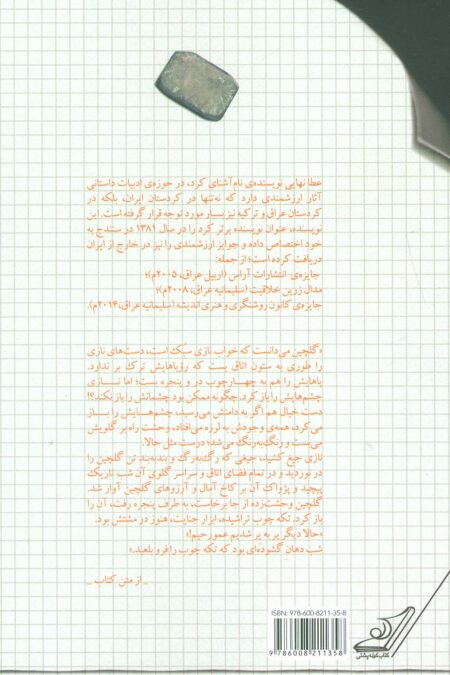 عطا نهایی نویسنده‌ی نام‌آشنای کرد، در حوزه‌ی ادبیات داستانی
آثار ارزشمندی دارد که نه‌تنها در کردستان ایران، بلکه در
کردستان عراق و ترکیه نیز بسیار مورد توجه قرار گرفته است. این
نویسنده، عنوان نویسنده برتر کرد را در سال ۱۳۸۱ در سنندج به
خود اختصاص داده و جوایز ارزشمندی را نیز در خارج از ایران
دریافت کرده است؛ از جمله:
جایزه‌ی انتشارات آراس (اربیل عراق، ۲۰۰۵م)؛
مدال زرین خلاقیت (سلیمانیه عراق، ۲۰۰۸م)؛
جایزه‌ی کانون روشنگری و هنری اندیشه (سلیمانیه عراق، ۲۰۱۴م).
«گلچین می‌دانست که خواب نازی سبک است، دست‌های نازی
را طوری به ستون اتاق بست که رؤیاهایش ترک بر ندارد.
پاهایش را هم به چهارچوب در و پنجره بست؛ اما نازی
چشم‌هایش را باز کرد. چگونه ممکن بود چشمانش را باز نکند؟!
دست خیال هم اگر به دامنش می‌رسید، چشم‌هایش را باز
می‌کرد، همه‌ی وجودش به لرزه می‌افتاد، وحشت راه بر گلویش
می‌بست و رنگ‌به‌رنگ می‌شد؛ درست مثل حالا.
نازی جیغ کشید، جیغی که رگ‌به‌رگ و بندبه‌بند تن گلچین را
در نوردید و در تمام فضای اتاق و سراسر گلوی آن شب تاریک
پیچید و پژواک آن بر کاخ آمال و آرزوهای گلچین آوار شد.
گلچین وحشت‌زده از جا برخاست، به طرف پنجره رفت، آن را
باز کرد. تکه چوب تراشیده، ابزار جنایت، هنوز در مشتش بود.
«حالا دیگر یر به یر شدیم عمورحیم!»
شب دهان گشوده‌ای بود که تکه چوب را فرو بلعید.»
_از متن کتاب_
ISBN: 978-600-8211-35-8
9786008211358
کتاب کوله‌پشتی